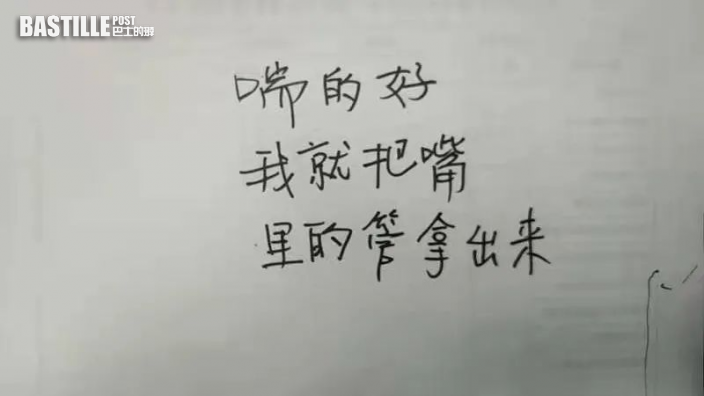 BASTILLE POST
巴士的報
喘的好
我就把嘴
里的管拿出来